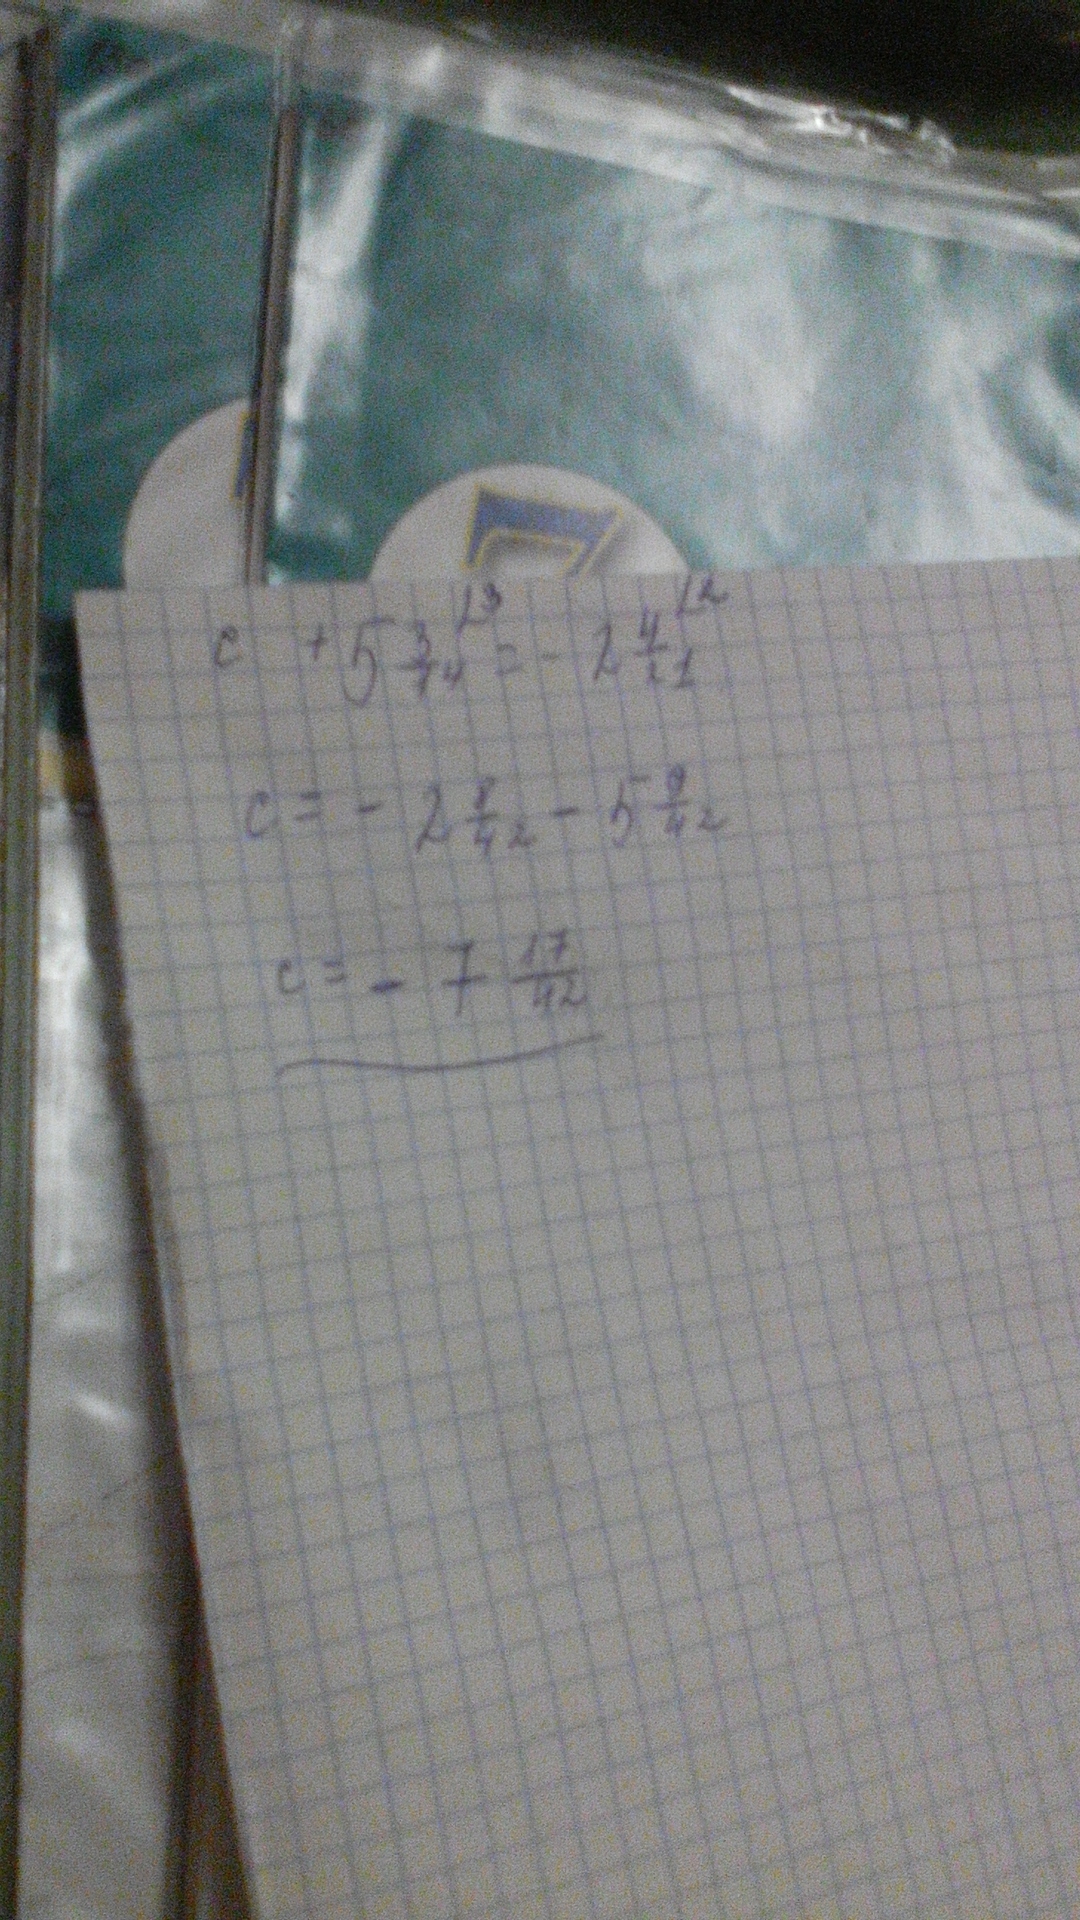 c + 5 3/14 ⌊3 = - 2 4/21 ⌊2
c = - 2 8/42 - 5 9/42
c = - 7 17/42